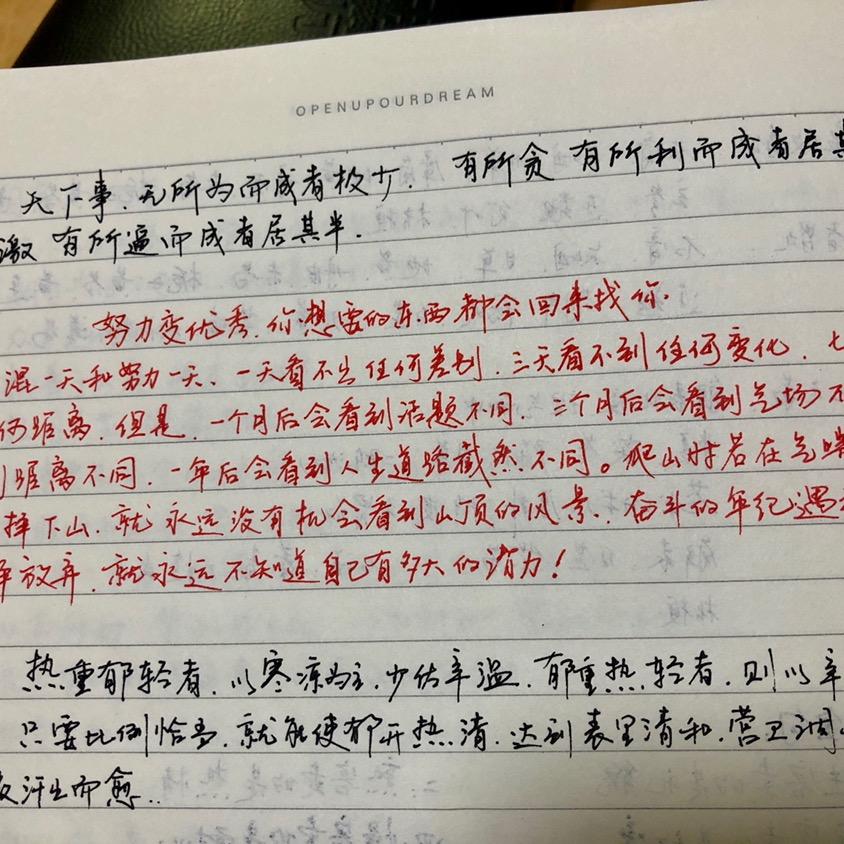 OPENUPOURDREAM
天下事.无所为而成者极少. 有所贪有所利而成者居其
激有所逼而成者居其半.
努力变优秀.你想要的东西都会回来找你.
混一天和努力一天、一天看不出任何差别.三天看不到任何变化.七
何距离.但是.一个月后会看到话题不同.三个月后会看到气场不
距离不同.一年后会看到人生道路截然不同。爬山时若在气喘
择下山.就永远没有机会看到山顶的风景.奋斗的年纪遇
择放弃.就永远不知道自己有多大的潜力!
热重郁轻者.以寒凉为主.少佐辛温.郁重热轻者.则以辛
只要比例恰当.就能使郁开热清.达到表里清和.营卫调
汗出而愈..